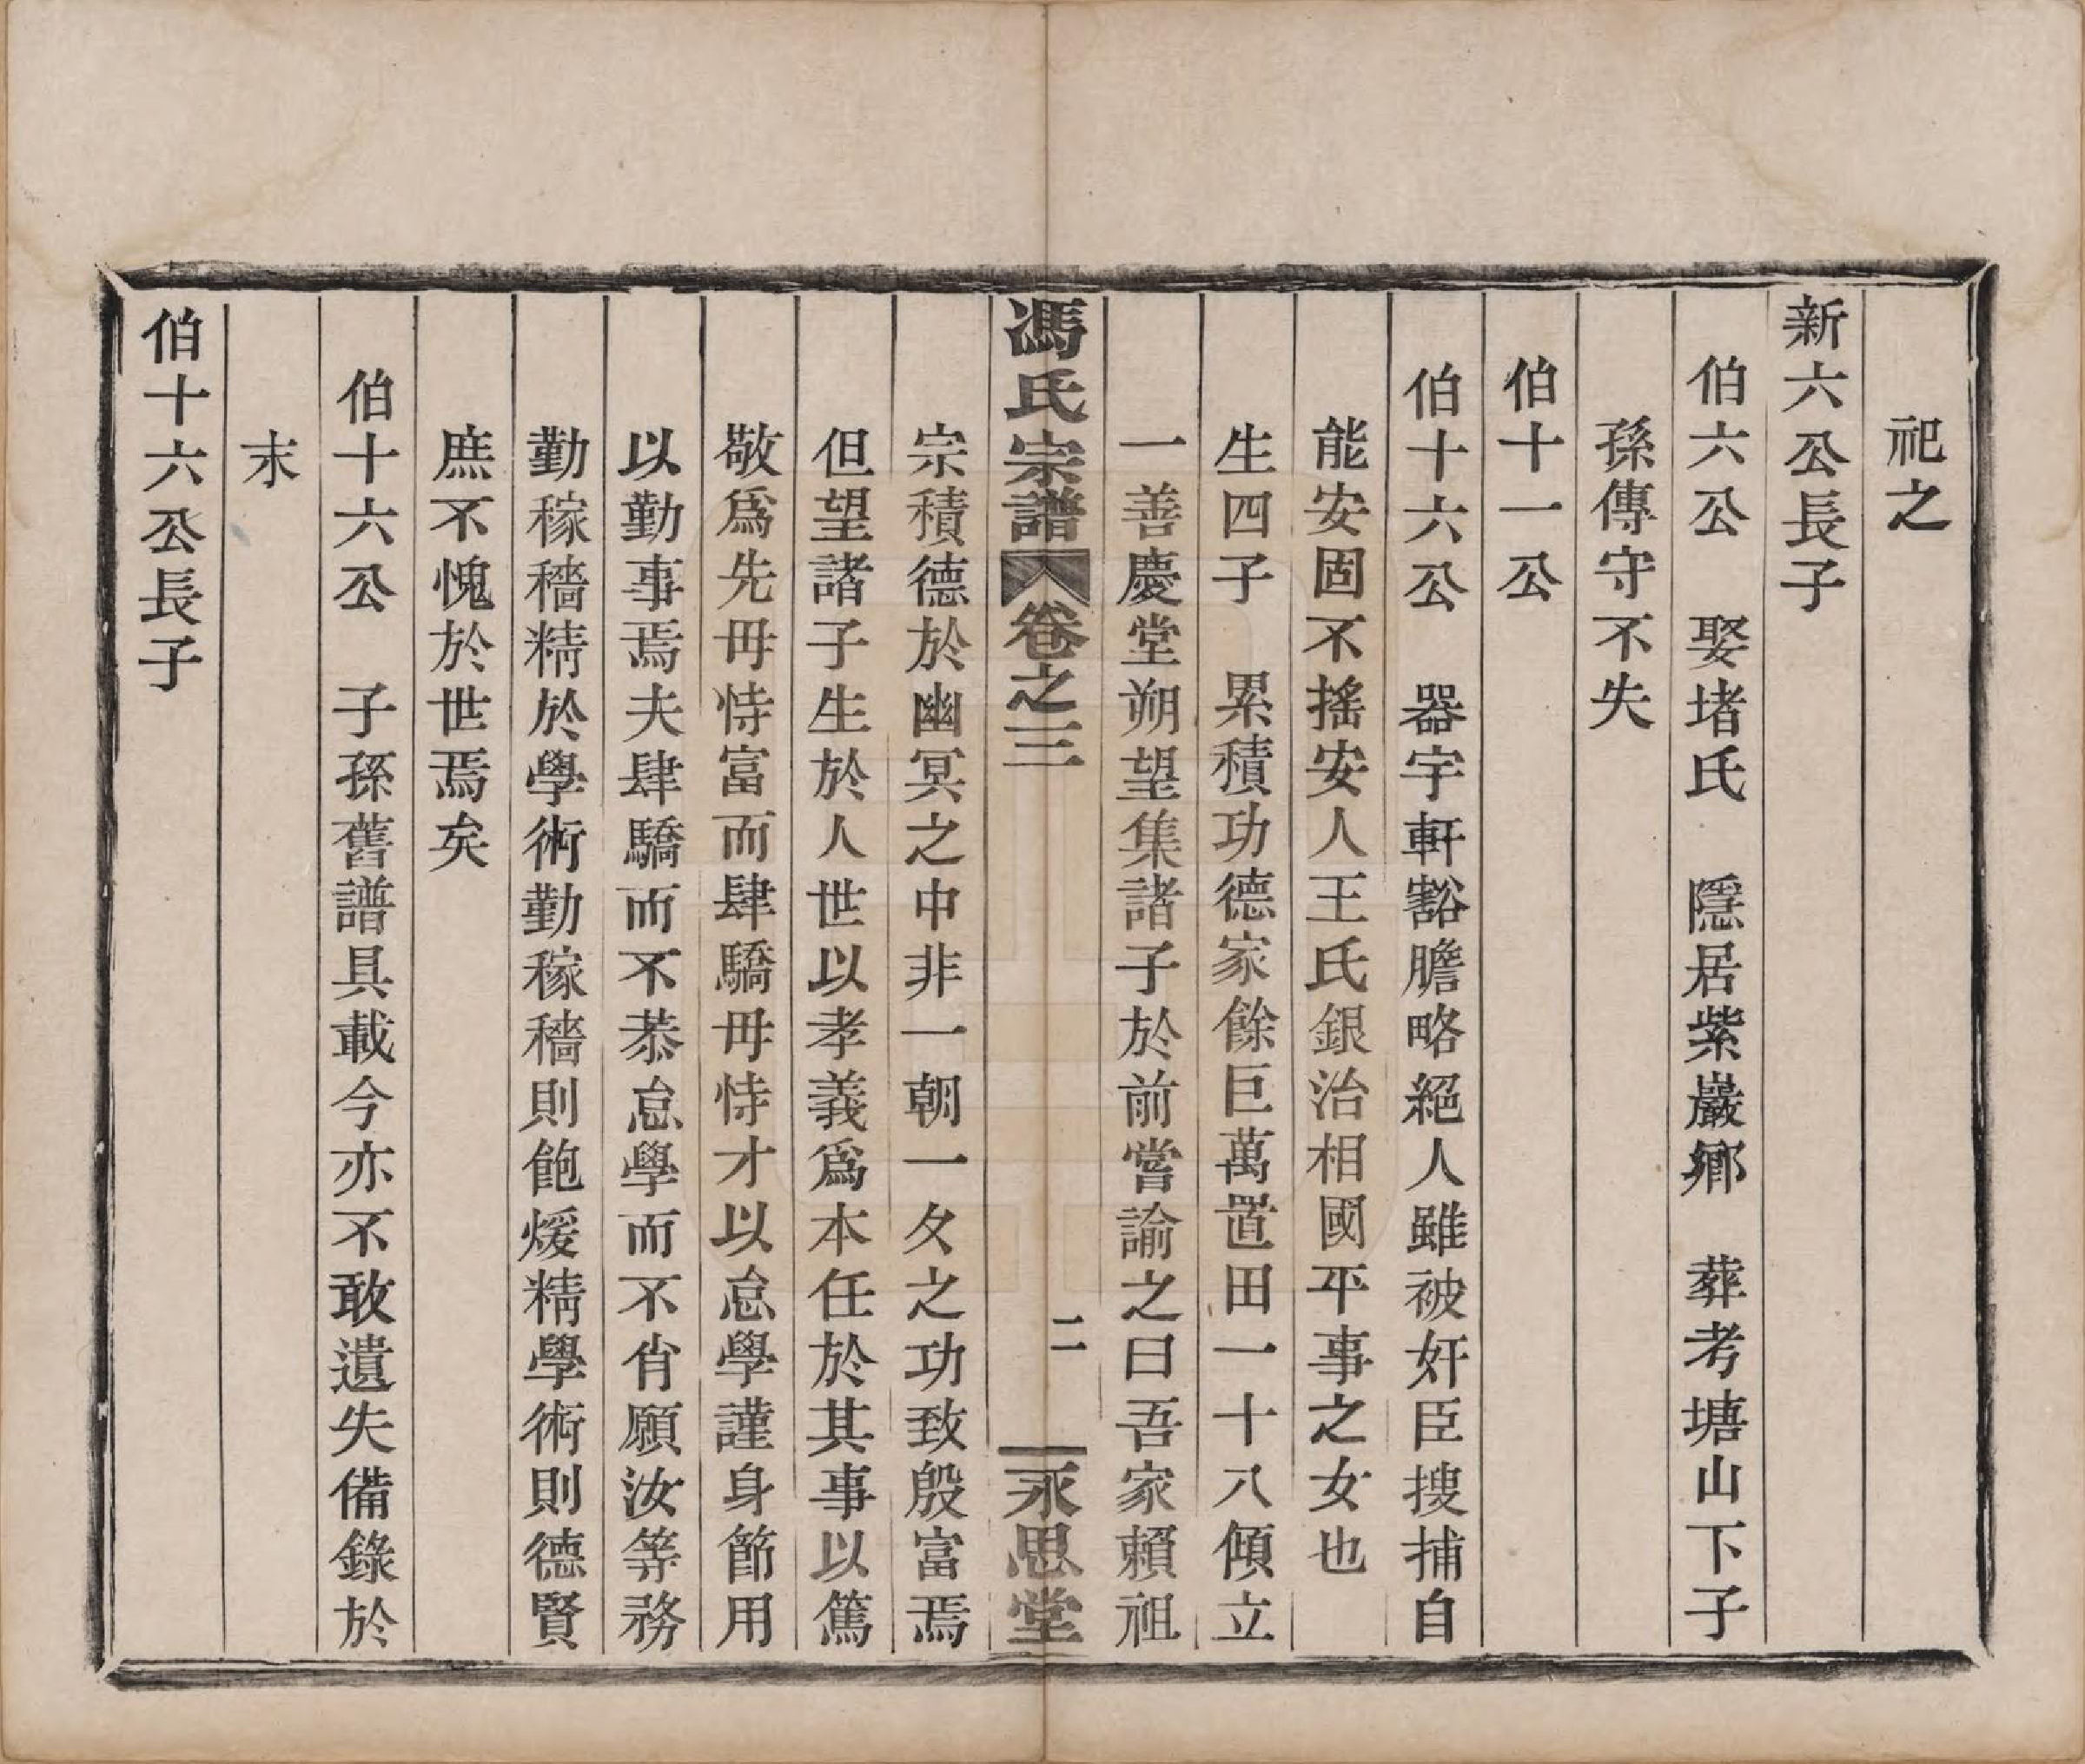 祀之
新六公長子
伯六公　娶堵氏　隱居紫巖鄉　葬考塘山下子
孫傳守不失
伯十一公
伯十六公　器宇軒豁膽略絕人雖被奸臣搜捕自
能安固不搖安人王氏銀治相國平事之女也
生四子　累積功德家餘巨萬置田一十八傾立
一善慶堂朔望集諸子於前嘗諭之曰吾家賴祖
馮氏宗譜　卷之三　二　永思堂
宗積德於幽冥之中非一朝一夕之功致殷富焉
但望諸子生於人世以孝義爲本任於其事以篤
敬爲先毋恃富而肆驕毋恃才以怠學謹身節用
以勤事焉夫肆驕而不恭怠學而不肖願汝等務
勤稼穡精於學術勤稼穡則飽煖精學術則德賢
庶不愧於世焉矣
伯十六公　子孫舊譜具載今亦不敢遺失備錄於
末
伯十六公長子